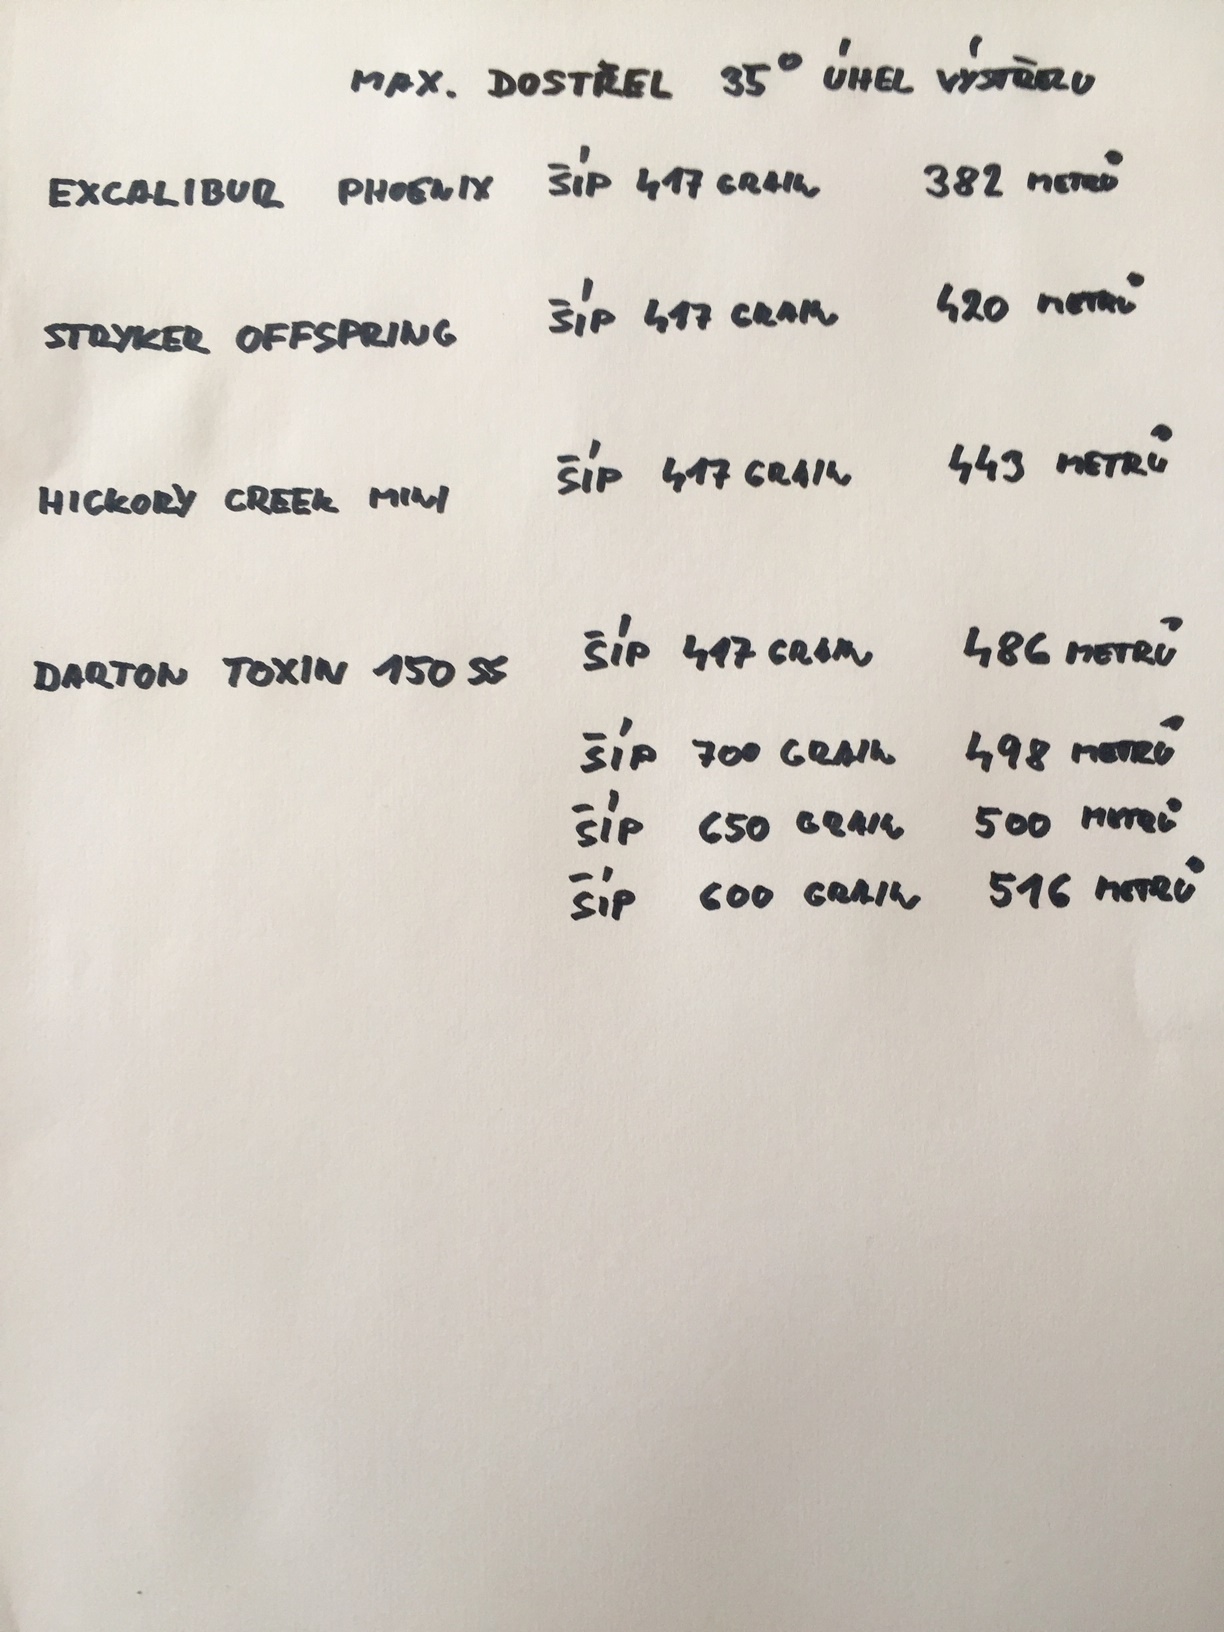 MAX. DOSTŘEL 35° ÚHEL VÝSTŘELU
EXCALIBUR PHOENIX ŠÍP 417 GRAIN 382 METRŮ
STRYKER OFFSPRING ŠÍP 417 GRAIN 420 METRŮ
HICKORY CREEK MINI ŠÍP 417 GRAIN 443 METRŮ
DARTON TOXIN 150 SS ŠÍP 417 GRAIN 486 METRŮ
ŠÍP 700 GRAIN 498 METRŮ
ŠÍP 650 GRAIN 500 METRŮ
ŠÍP 600 GRAIN 516 METRŮ